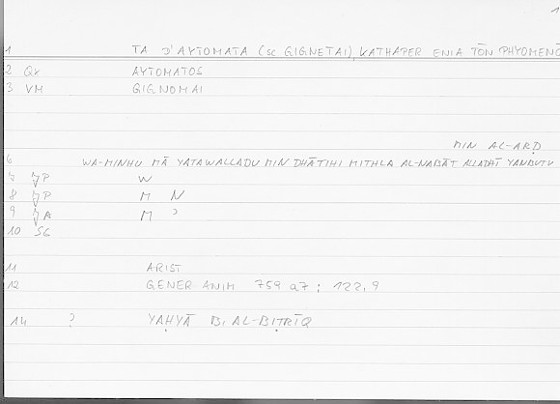 1
1 TA D'AYTOMATA (sc GIGNETAI), KATHAPER ENIA TŌN PHYOMENŌ
2 Qx AYTOMATOS
3 VM GIGNOMAI
MIN AL-ARḌ
6 WA-MINHU MĀ YATAWALLADU MIN DHĀTIHI MITHLA AL-NABĀT ALLADHĪ YANBUTU
7 P W
8 P M N
9 A M
10 SC
11 ARIST
12 GENER ANIM 759 a7 ; 122,9
14 ? YAḤYĀ B. AL-BIṬRĪQ